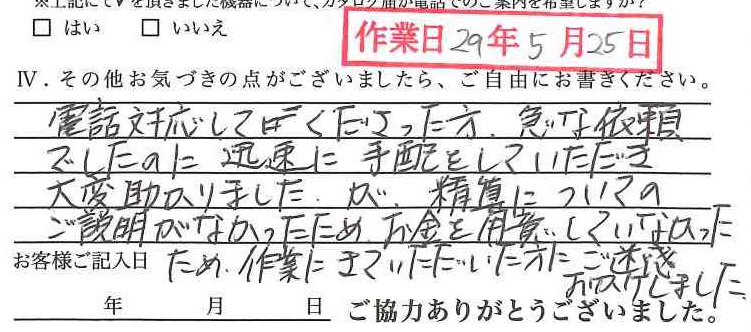 ※上記にて✓を頂きました機器について、カタログ届か電話でのご案内を希望しますか？
□ はい □ いいえ
作業日 29年5月25日
Ⅳ．その他お気づきの点がございましたら、ご自由にお書きください。
電話対応して下さった方、急な依頼
でしたのに 迅速に 手配をしていただき
大変助かりました。が、精算についての
ご説明がなかったため、お金を用意していなかった
お客様ご記入日 ため、作業にきていただいた方にご迷惑
おかけしました。
年 月 日 ご協力ありがとうございました。